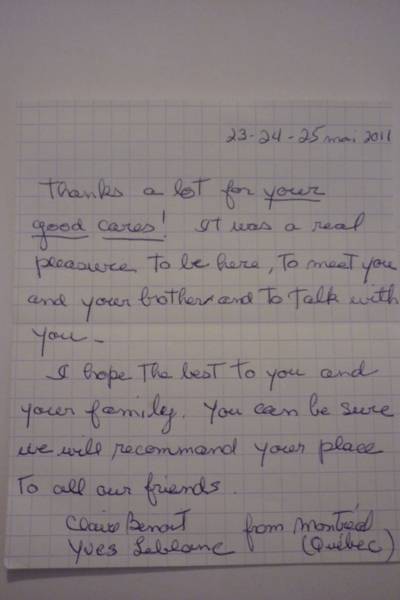 23-24-25 mai 2011
Thanks a lot for your
good cares! It was a real
pleasure to be here, to meet you
and your brother and to talk with
you -
I hope the best to you and
your family. You can be sure
we will recommand your place
to all our friends.
Claire Benoit from Montréal
Yves Leblanc (Québec)